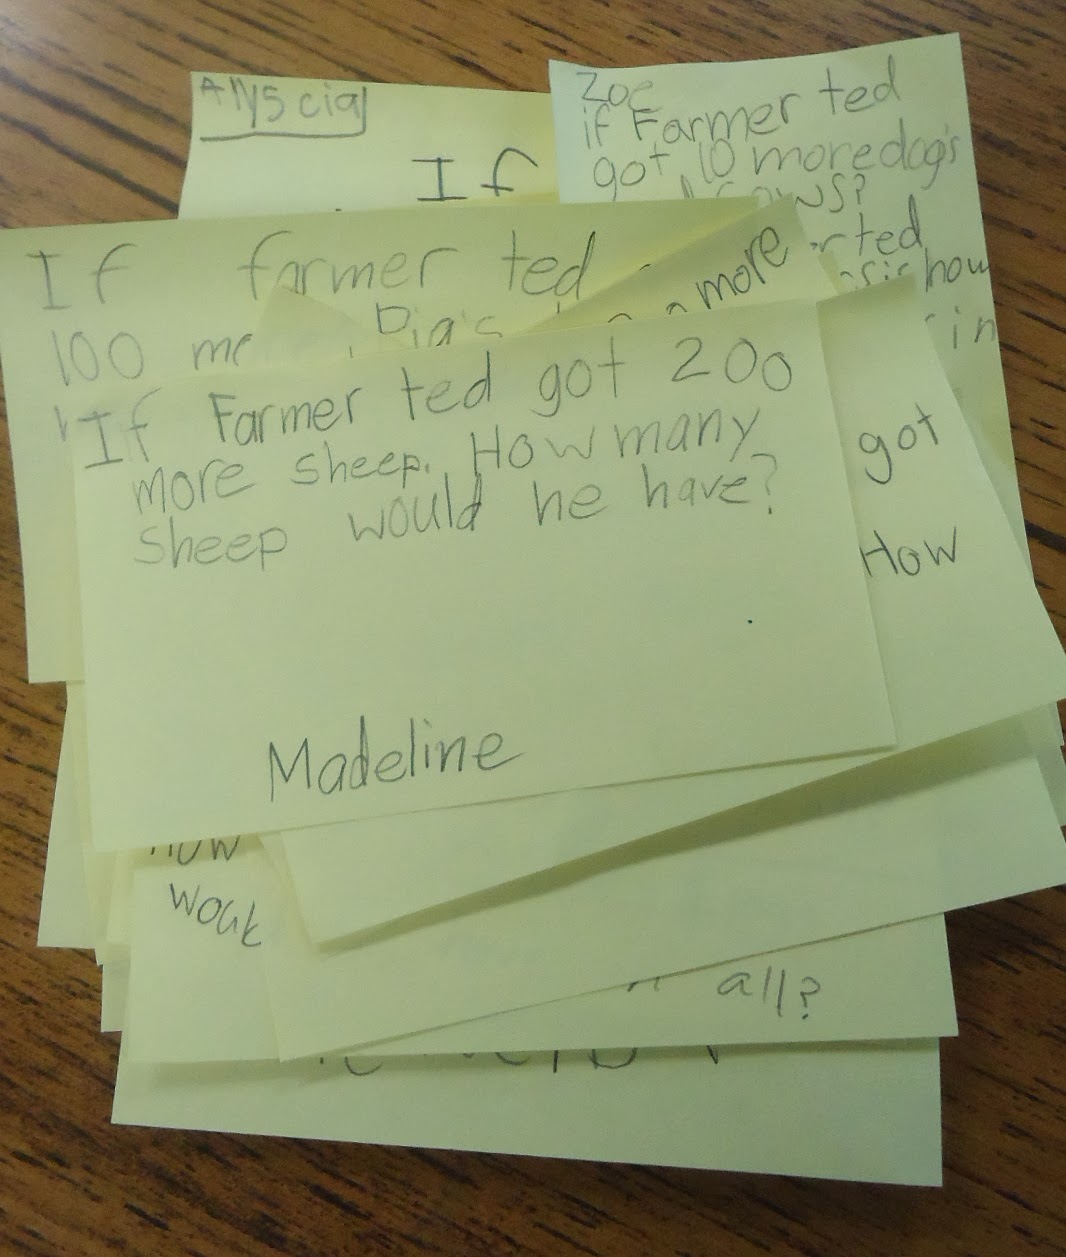 Alyscia
If
Zoe
if Farmer ted
got 10 more dog's
cows?
ted
how
in
If farmer ted
100
Pig's
more
If Farmer ted got 200
more sheep. How many
sheep would he have?
Madeline
got
How
How
all?